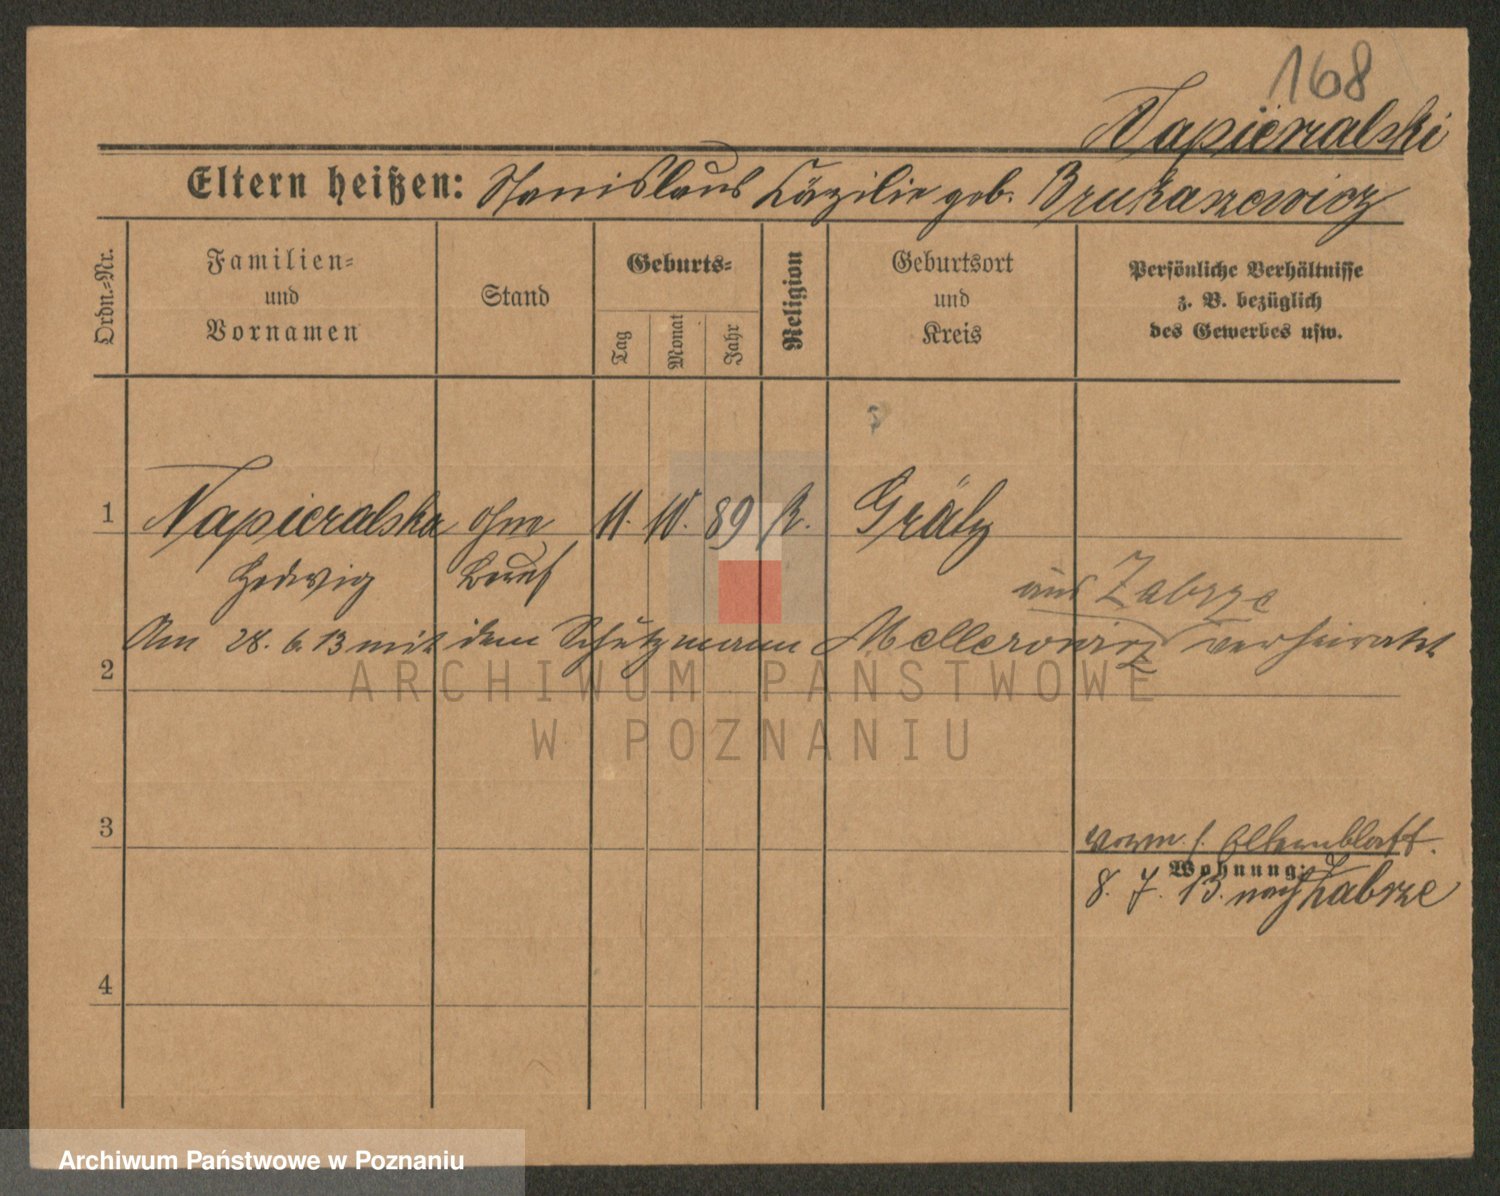 168
Napieralski
Eltern heißen: Stanislaus Cäzilie geb. Brukarzewicz
Ordn.-Nr.
Familien-
und
Vornamen
Stand
Geburts-
Tag
Monat
Jahr
Religion
Geburtsort
und
Kreis
Persönliche Verhältnisse
z. B. bezüglich
des Gewerbes usw.
1 Napieralska ohne 11. 10. 89 k. Grätz
Hedwig Beruf
aus Zabrze
Am 28. 6. 13 mit dem Schutzmann verheiratet
2
ARCHIWUM PAŃSTWOWE
W POZNANIU
3
vorm. s. Elternblatt.
Wohnung:
8. 7. 13. nach Zabrze
4
Archiwum Państwowe w Poznaniu